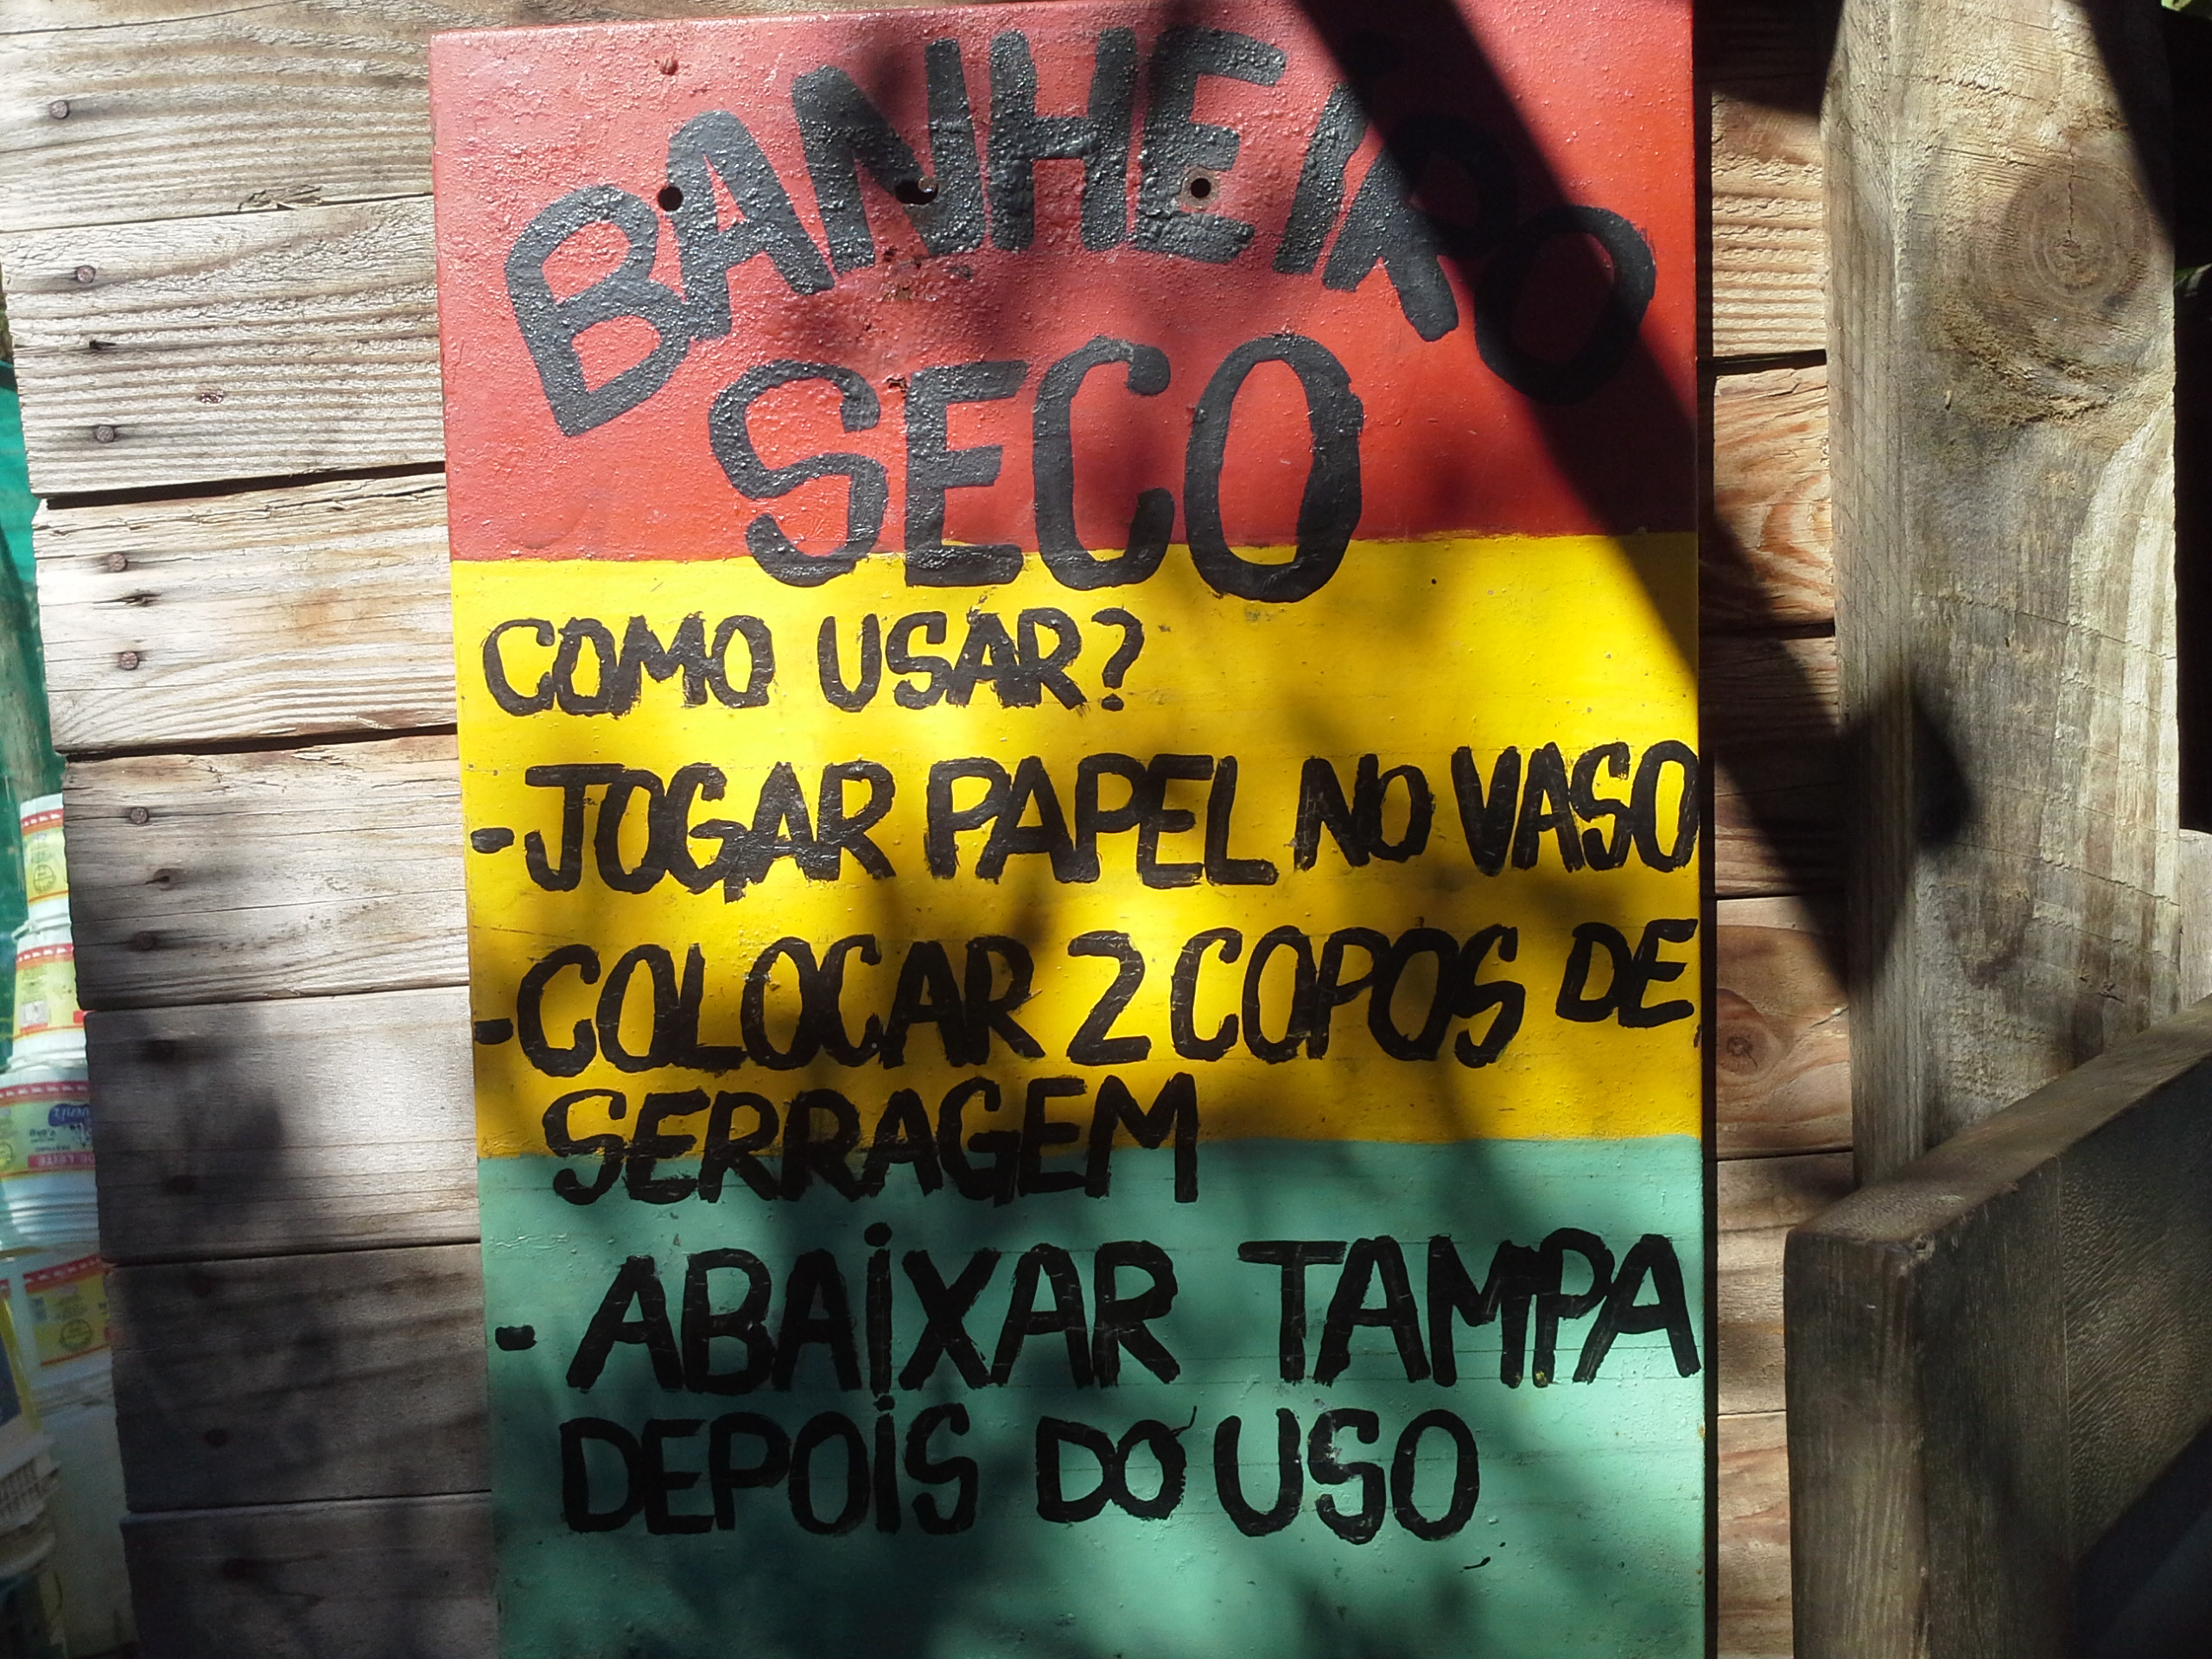 BANHEIRO
SECO
COMO USAR?
-JOGAR PAPEL NO VASO
-COLOCAR 2 COPOS DE
SERRAGEM
- ABAIXAR TAMPA
DEPOIS DO USO
DE LEITE